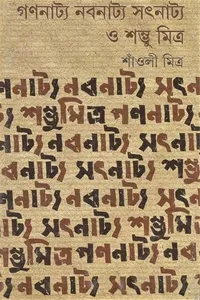 গণনাট্য নবনাট্য সৎনাট্য
ও শম্ভু মিত্র
শাঁওলী মিত্র
গণনাট্য নবনাট্য
সৎনাট্য শম্ভুমিত্র
শম্ভুমিত্র গণনাট্য
গণনাট্য নবনাট্য
নবনাট্য সৎনাট্য
সৎনাট্য শম্ভুমিত্র
শম্ভুমিত্র গণনাট্য
নবনাট্য সৎনাট্য